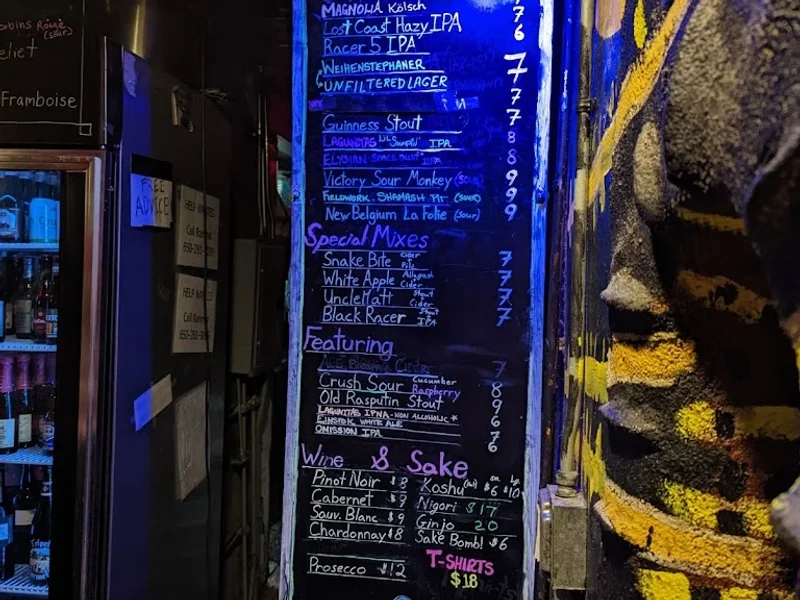 Rouge
(sour)
Framboise
FREE
ADVICE
HELP WANTED
Call
HELP WANTED
Call
MAGNOLIA Kölsch 7
Lost Coast Hazy IPA 7
Racer 5 IPA 6
WEIHENSTEPHANER 7
UNFILTERED LAGER 7
7
Guinness Stout 7
LAGUNITAS Lil Sumpin' IPA 8
ELYSIAN SPACE DUST IPA 8
Victory Sour Monkey (Sour) 9
FIELDWORK SHAMASH PT (SOUR) 9
New Belgium La Folie (sour) 9
Special Mixes
Snake Bite Cider Pils 7
White Apple Allagash Cider 7
Uncle Matt Stout Cider 7
Black Racer Stout IPA 7
Featuring
7
Crush Sour Cucumber Raspberry 8
Old Rasputin Stout 9
LAGUNITAS IPNA - NON ALCOHOLIC * 6
EINSTOK WHITE ALE 7
OMISSION IPA 6
Wine & Sake
Pinot Noir $8
Cabernet $9
Sauv. Blanc $9
Chardonnay $8
Prosecco $12
sm Lg
Koshu (hot) $6 $10
Nigori $17
Ginjo 20
Sake Bomb! $6
T-SHIRTS
$18